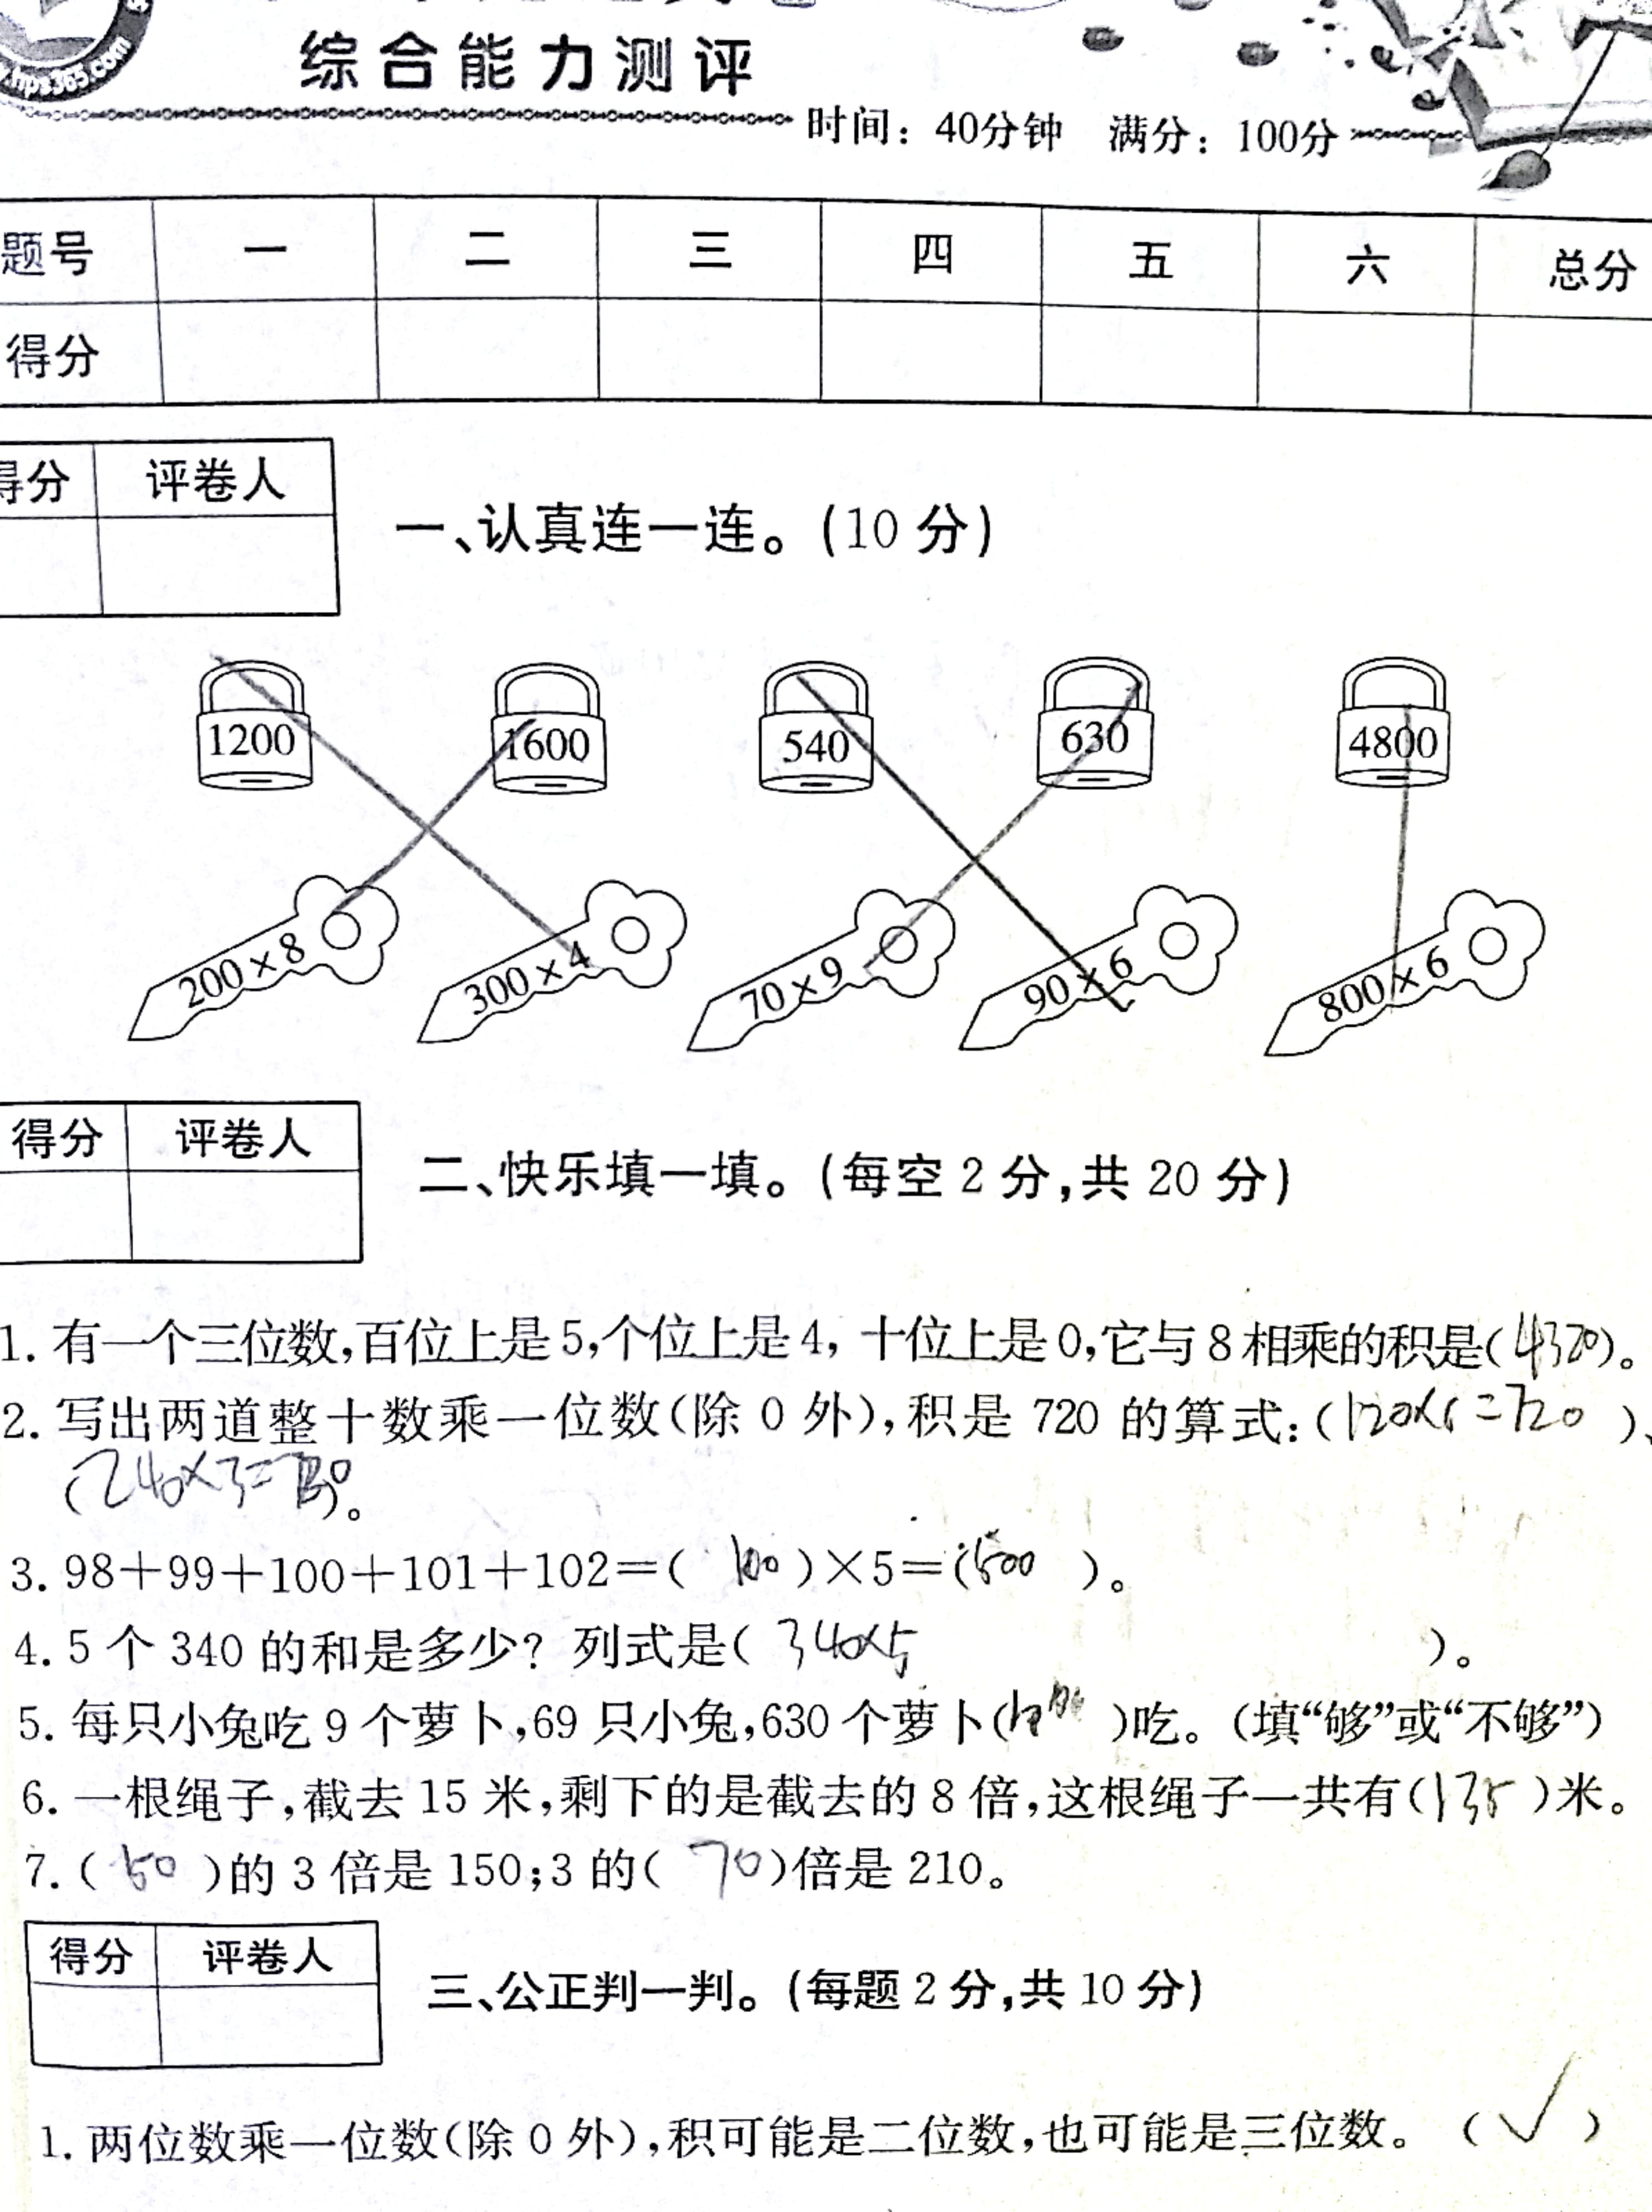 综合能力测评
时间：40分钟 满分：100分
题号 一 二 三 四 五 六 总分
得分
得分 评卷人
一、认真连一连。(10 分)
1200 1600 540 630 4800
200×8 300×4 70×9 90×6 800×6
得分 评卷人
二、快乐填一填。(每空 2 分,共 20 分)
1. 有一个三位数,百位上是5,个位上是4, 十位上是0,它与 8 相乘的积是(4320)。
2. 写出两道整十数乘一位数(除 0 外),积是 720 的算式:(120×6=720 )、
(240×3=720)。
3. 98+99+100+101+102=( 100 )×5=(500 )。
4. 5 个 340 的和是多少? 列式是( 340×5 )。
5. 每只小兔吃 9 个萝卜,69 只小兔,630 个萝卜( )吃。(填“够”或“不够”)
6. 一根绳子,截去 15 米,剩下的是截去的 8 倍,这根绳子一共有(135 )米。
7. ( 50 )的 3 倍是 150;3 的( 70 )倍是 210。
得分 评卷人
三、公正判一判。(每题 2 分,共 10 分)
1. 两位数乘一位数(除 0 外),积可能是二位数,也可能是三位数。 ( √ )